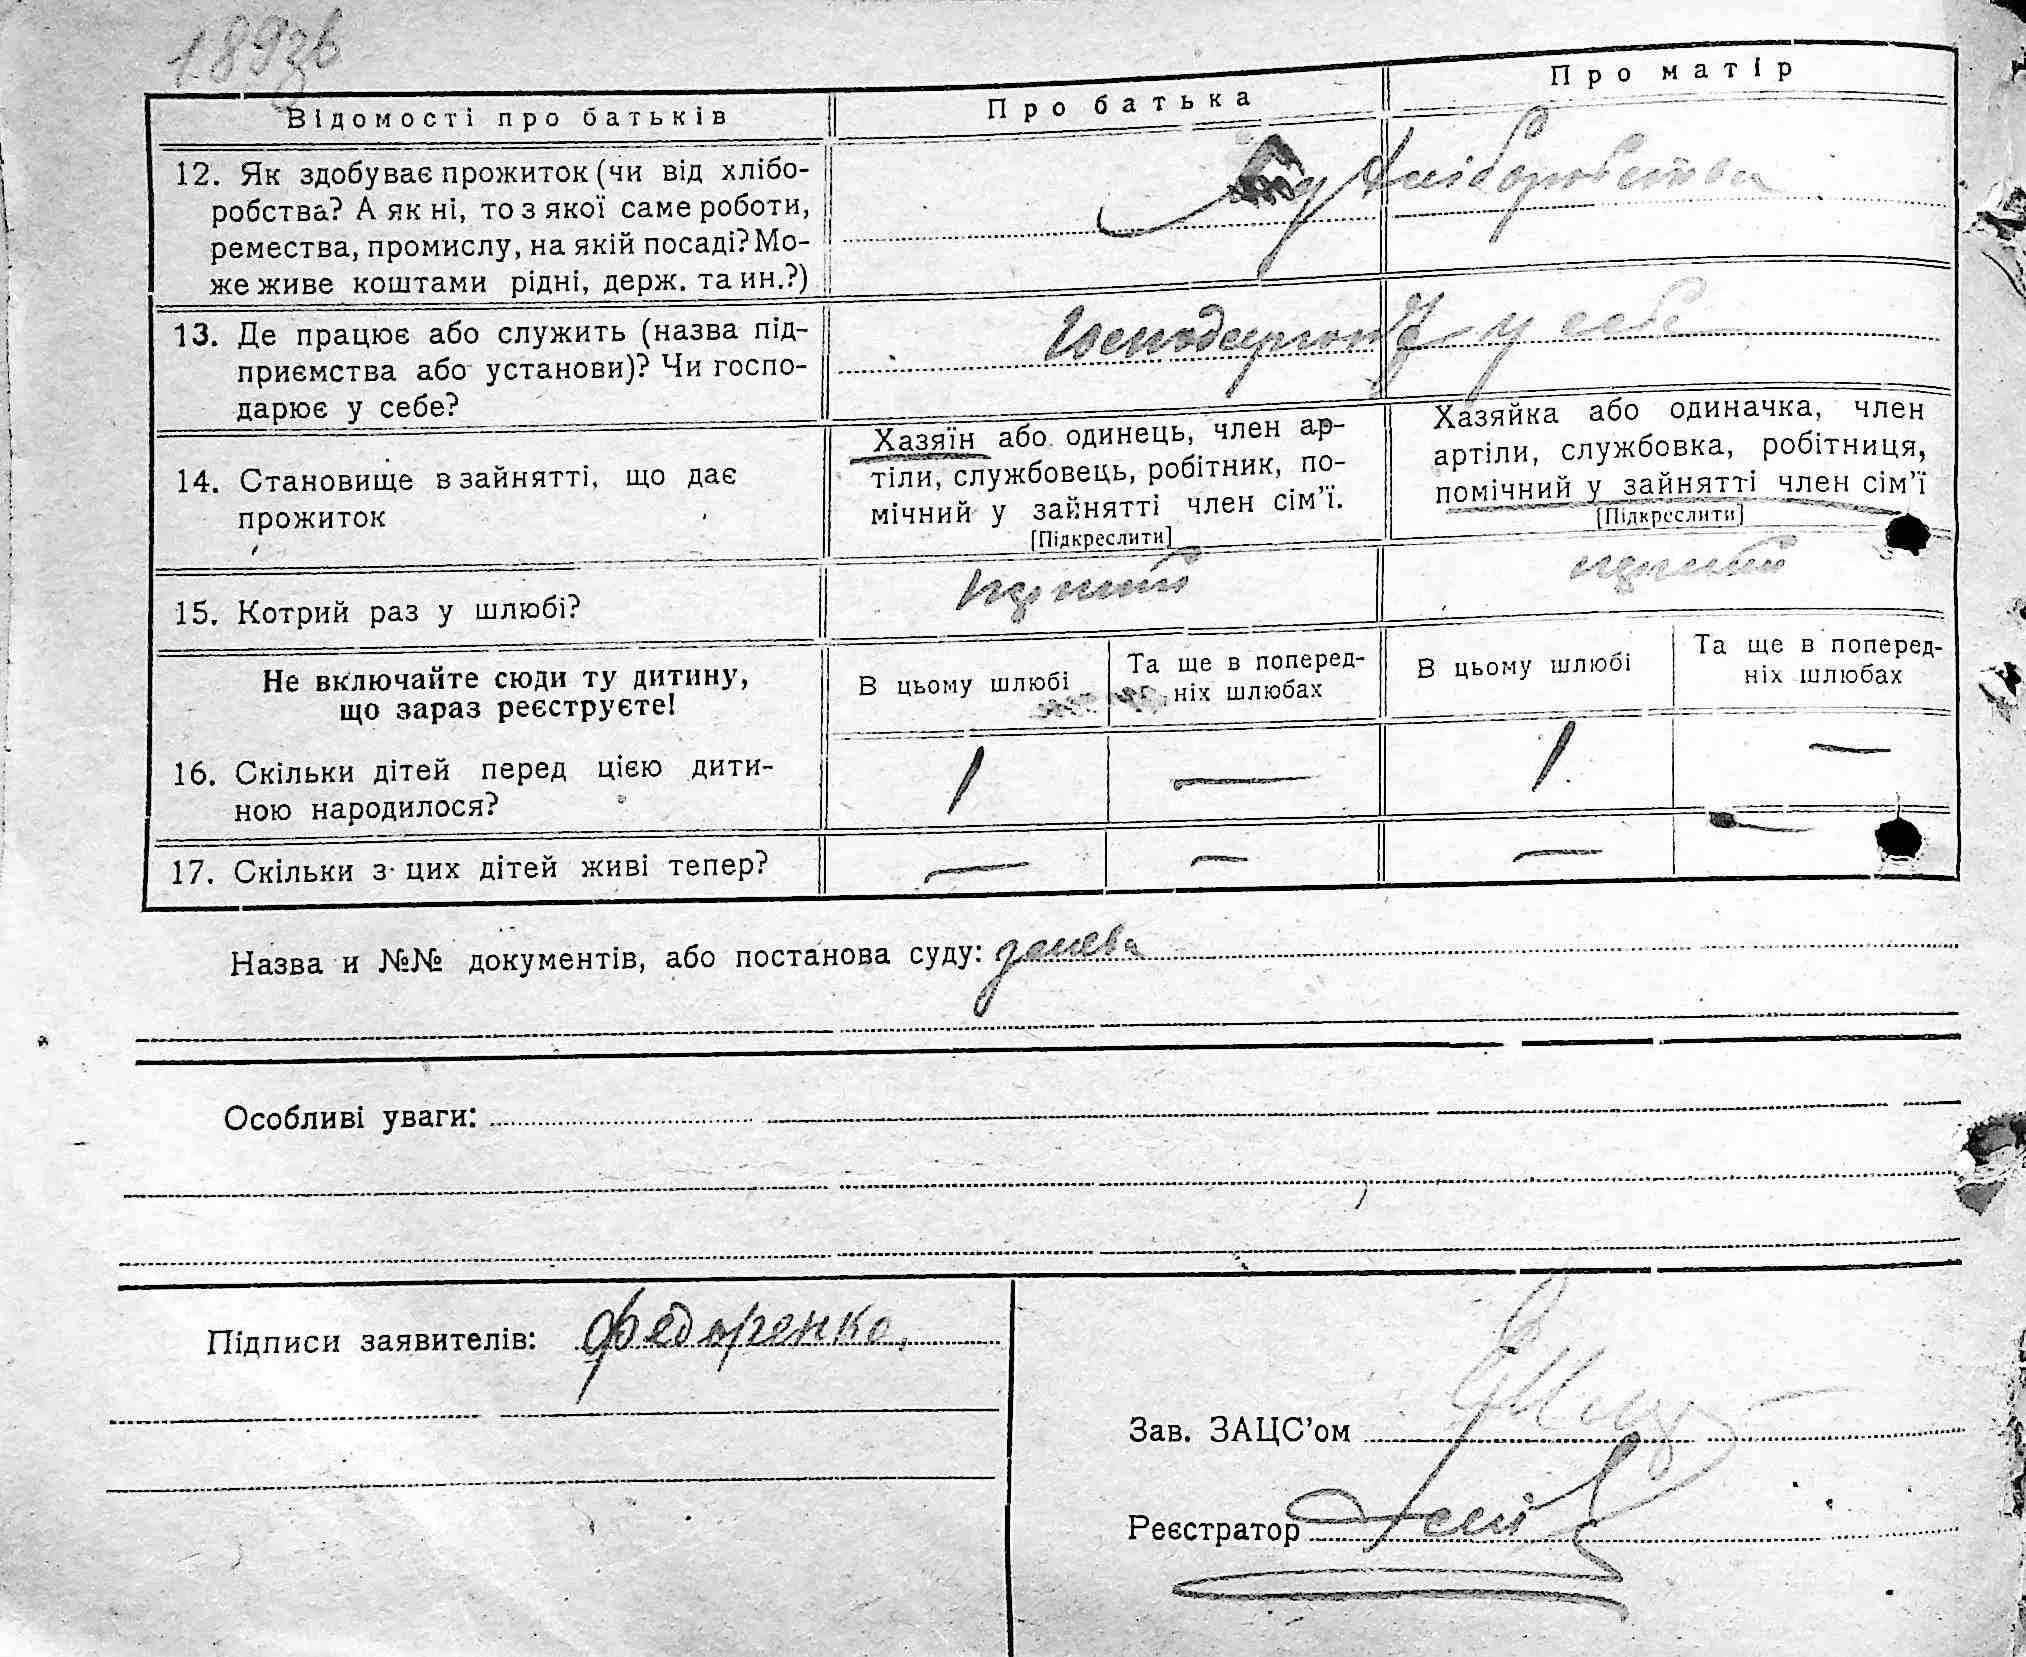 189зв
Відомості про батьків
Про батька
Про матір
12. Як здобуває прожиток (чи від хлібо-
робства? А як ні, то з якої саме роботи,
ремества, промислу, на якій посаді? Мо-
же живе коштами рідні, держ. та ин.?)
хліборобства
13. Де працює або служить (назва під-
приємства або установи)? Чи госпо-
дарює у себе?
Господарюють у себе
14. Становище в зайнятті, що дає
прожиток
Хазяїн або одинець, член ар-
тіли, службовець, робітник, по-
мічний у зайнятті член сім'ї.
[Підкреслити]
Хазяйка або одиначка, член
артіли, службовка, робітниця,
помічний у зайнятті член сім'ї
[Підкреслити]
15. Котрий раз у шлюбі?
перший
перший
Не включайте сюди ту дитину,
що зараз реєструєте!
В цьому шлюбі
Та ще в поперед-
ніх шлюбах
В цьому шлюбі
Та ще в поперед-
ніх шлюбах
16. Скільки дітей перед цією дити-
ною народилося?
1 — 1 —
17. Скільки з цих дітей живі тепер?
— — — —
Назва и №№ документів, або постанова суду:
Особливі уваги:
Підписи заявителів: Федоренко,
Зав. ЗАЦС'ом
Реєстратор